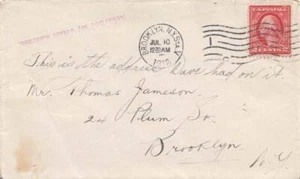 BROOKLYN, N.Y. STA. V
JUL 10
12 30 AM
1919
2 CENTS 2
This is the address I have had on it
Mr. Thomas Jameson.
24 Plum St.
Brooklyn
N.Y.